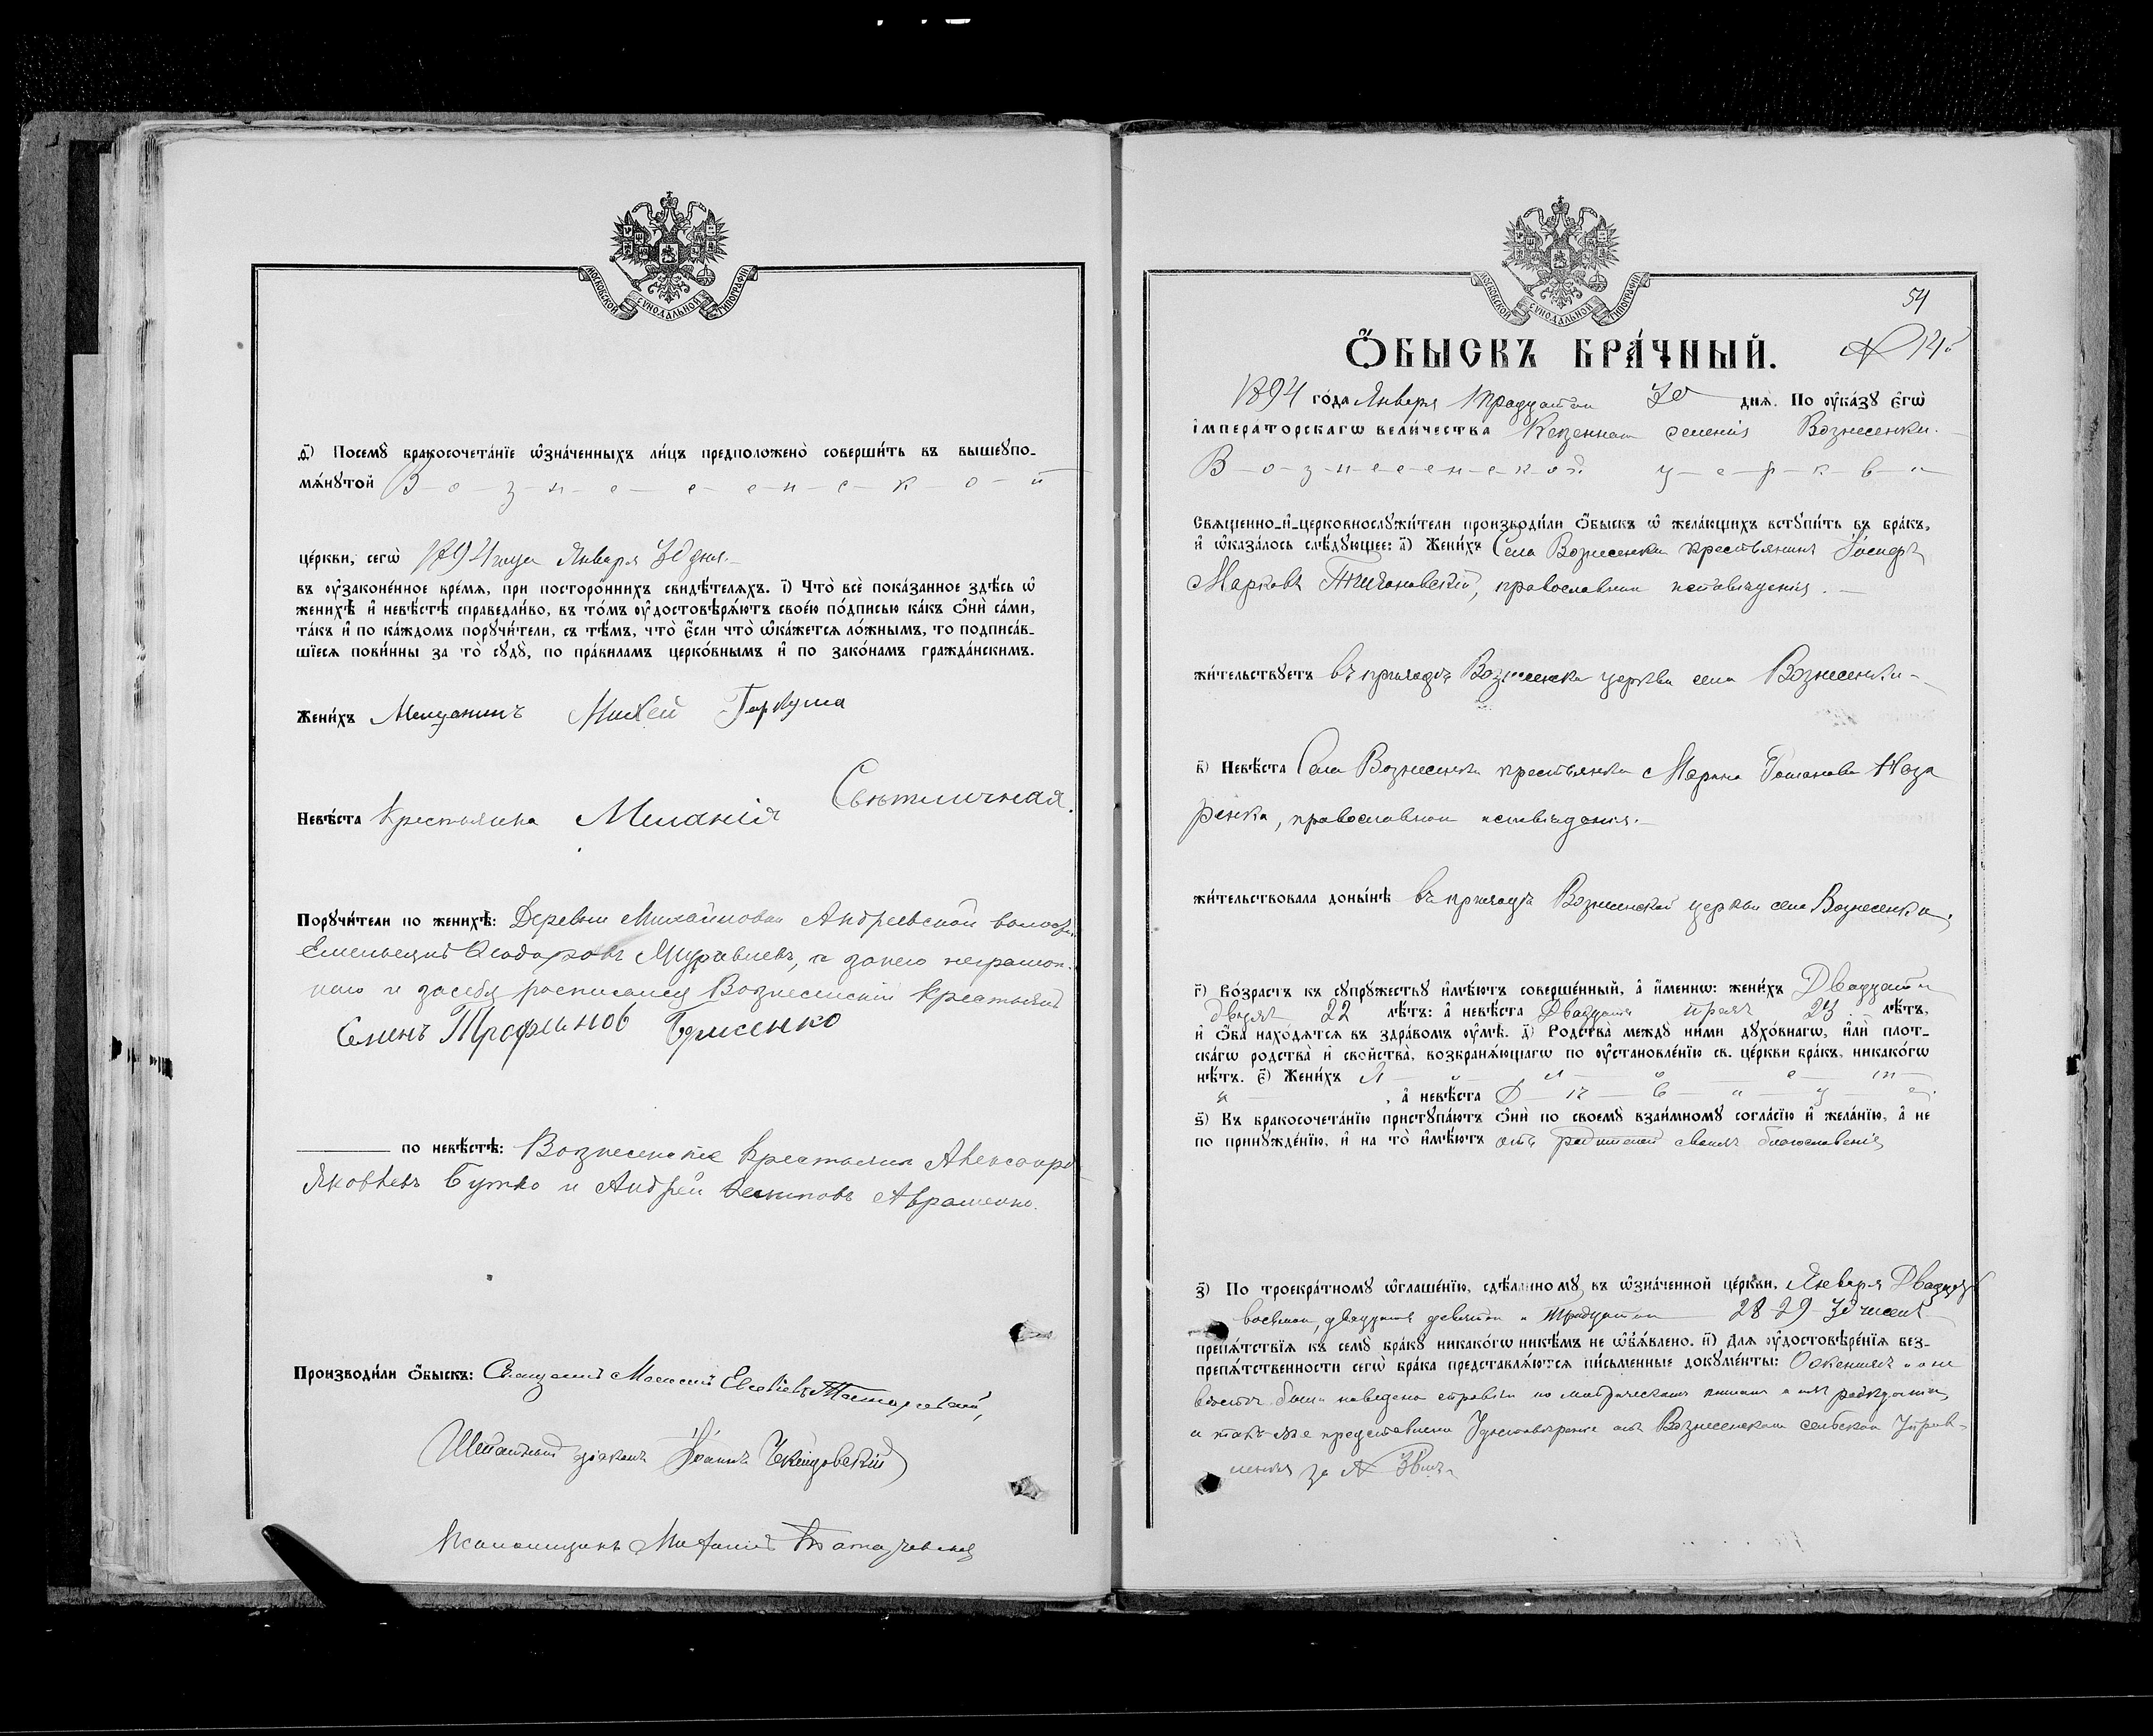 МОСКОВСКОЙ СѴНОДАЛЬНОЙ ТИПОГРАФІИ
ѳ҃) Посемꙋ̀ бракосочета́нїе ѡ҆зна́ченныхъ ли́цъ предположено̀ соверши́ть въ вышеꙋпо-
мѧ́нꙋтой В-о-з-н-е-с-е-н-с-к-о-й
це́ркви, сегѡ̀ 1894 года Января 30 дня.
въ ᲂу҆зако́ненное вре́мѧ, при посторо́ннихъ свидѣ́телѧхъ. і҃) Что̀ всѐ пока́занное здѣ́сь ѡ҆
женихѣ̀ и҆ невѣ́стѣ справедли́во, въ то́мъ ᲂу҆достовѣрѧ́ютъ свое́ю по́дписью ка́къ ѻ҆нѝ са́ми,
та́къ и҆ по ка́ждомъ порꙋчи́тели, съ тѣ́мъ, что̀ є҆́сли что̀ ѡ҆ка́жетсѧ ло́жнымъ, то подписа́в-
шїесѧ пови́нны за то̀ сꙋдꙋ̀, по пра́виламъ церко́внымъ и҆ по зако́намъ гражда́нскимъ.
Жени́хъ Мещанинъ Михей Гаркуша
Невѣ́ста Крестьянка Меланія Свѣтличная.
Порꙋчи́тели по женихѣ̀: Деревни Михайловки Андреевской волости
Ѳеодоровъ Муравлевъ, а за него неграмот-
наго и за себя росписался Вознесенскій крестьянинъ
Семенъ Трофимов Борисенко
по невѣ́стѣ: Вознесенскіе крестьяне Александръ
Яковлевъ Бутко и Андрей Авраменко.
Производи́ли ѻ҆́быскъ: Священникъ
Штатный діаконъ Іоаннъ
Псаломщикъ
МОСКОВСКОЙ СѴНОДАЛЬНОЙ ТИПОГРАФІИ
54
Ѻ҆́БЫСКЪ БРА́ЧНЫЙ. №
1894 го́да Января тридцатаго 30 днѧ̀. По ᲂу҆ка́зꙋ є҆гѡ̀
і҆мпера́торскагѡ вели́чества Казеннаго селенія Вознесенки.
В-о-з-н-е-с-е-н-с-к-о-й ц-е-р-к-в-и
Свѧще́нно-и҆-церковнослꙋжи́тели производи́ли ѻ҆́быскъ ѡ҆ жела́ющихъ встꙋпи́ть въ бра́къ,
и҆ ѡ҆каза́лось слѣ́дꙋющее: а҃) Жени́хъ Села Вознесенки крестьянинъ Іосифъ
Марковъ православнаго исповѣданія.
жи́тельствꙋетъ въ приходѣ Вознесенской церкви села Вознесенки
в҃) Невѣ́ста Села Вознесенки крестьянка Марина Романова Наза
ренко, православнаго исповѣданія.
жи́тельствовала доны́нѣ въ приходѣ Вознесенской церкви села Вознесенки,
г҃) Во́зрастъ къ сꙋпрꙋ́жествꙋ и҆мѣ́ютъ соверше́нный, а҆ и҆́менно: жени́хъ Двадцати
двухъ 22 лѣ́тъ: а҆ невѣ́ста Двадцати трехъ 23 лѣ́тъ,
и҆ ѻ҆́ба нахо́дѧтсѧ въ здра́вомъ ᲂу҆мѣ̀. д҃) Родства̀ междꙋ̀ ни́ми дꙋхо́внагѡ, и҆лѝ плот-
ска́гѡ родства̀ и҆ сво́йства, возбранѧ́ющагѡ по ᲂу҆становле́нїю св. це́ркви бра́къ, никако́гѡ
нѣ́тъ. є҃) Жени́хъ
, а҆ невѣ́ста Д-ѣ-в-и-ц-а
ѕ҃) Къ бракосочета́нїю пристꙋпа́ютъ ѻ҆нѝ по своемꙋ̀ взаи́мномꙋ согла́сїю и҆ жела́нїю, а҆ не
по принꙋжде́нїю, и҆ на то̀ и҆мѣ́ютъ отъ родителей своихъ благословеніе
з҃) По троекра́тномꙋ ѡ҆глаше́нїю, сдѣ́ланномꙋ въ ѡ҆зна́ченной це́ркви, Января Двадцать
восьмаго, двадцать девятаго и тридцатаго 28-29-30 чиселъ
препѧ́тствїѧ къ семꙋ̀ бра́кꙋ никако́гѡ никѣ́мъ не ѡ҆б̾ѧ́влено. и҃) Длѧ ᲂу҆достовѣре́нїѧ без-
препѧ́тственности сегѡ̀ бра́ка представлѧ́ютсѧ пи́сьменные докꙋме́нты: О женихѣ и о не
вѣстѣ были наведены справки по метрическимъ книгамъ
и такъ же представлено Удостовѣреніе отъ Вознесенскаго сельскаго Управ-
ленія за №